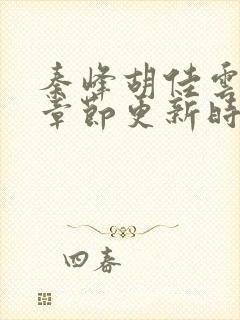 秦峰胡佳雲
章節更新時
四春